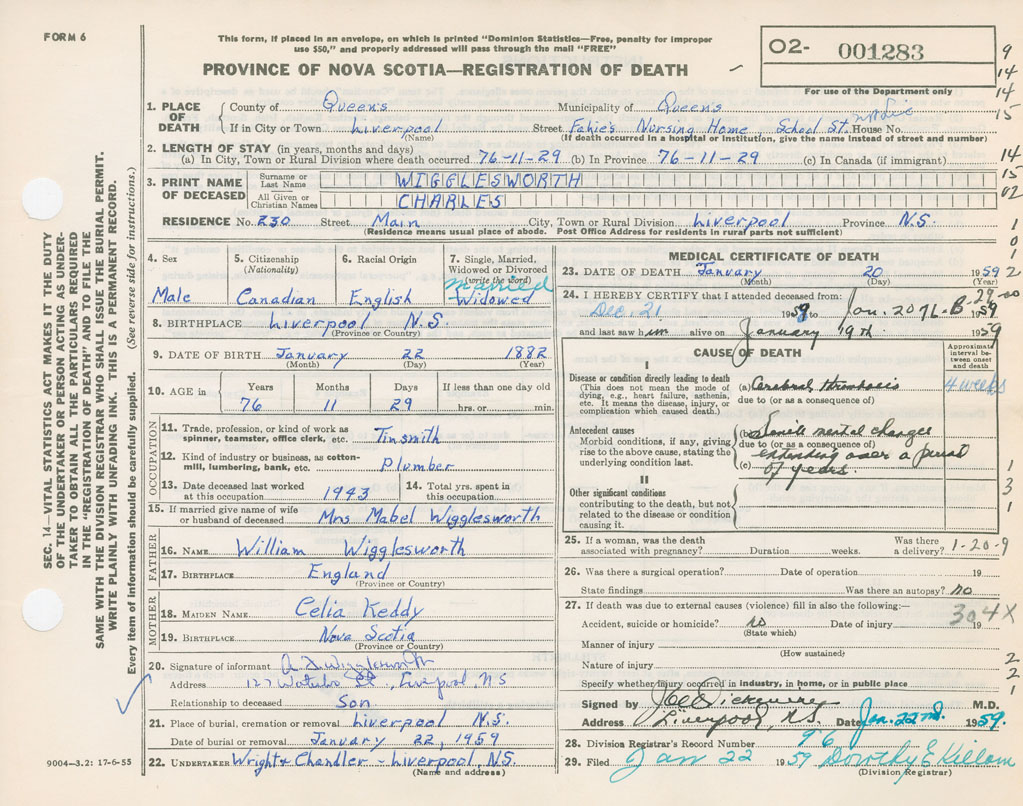 FORM 6
This form, if placed in an envelope, on which is printed "Dominion Statistics—Free, penalty for improper
use $50," and properly addressed will pass through the mail "FREE"
PROVINCE OF NOVA SCOTIA—REGISTRATION OF DEATH
02- 001283
For use of the Department only
9
14
14
15
14
15
02
1
0
1
2
SEC. 14—VITAL STATISTICS ACT MAKES IT THE DUTY
OF THE UNDERTAKER OR PERSON ACTING AS UNDER-
TAKER TO OBTAIN ALL THE PARTICULARS REQUIRED
IN THE "REGISTRATION OF DEATH" AND TO FILE THE
SAME WITH THE DIVISION REGISTRAR WHO SHALL ISSUE THE BURIAL PERMIT.
WRITE PLAINLY WITH UNFADING INK. THIS IS A PERMANENT RECORD.
Every item of information should be carefully supplied. (See reverse side for instructions.)
1. PLACE OF DEATH
County of Queens Municipality of Queens
If in City or Town Liverpool Street Fahie's Nursing Home School St. House No.
(Name) (If death occurred in a hospital or institution, give the name instead of street and number)
2. LENGTH OF STAY (in years, months and days)
(a) In City, Town or Rural Division where death occurred 76-11-29 (b) In Province 76-11-29 (c) In Canada (if immigrant)
3. PRINT NAME OF DECEASED
Surname or Last Name WIGGLESWORTH
All Given or Christian Names CHARLES
RESIDENCE No. 230 Street Main City, Town or Rural Division Liverpool Province N.S.
(Residence means usual place of abode. Post Office Address for residents in rural parts not sufficient)
4. Sex
Male
5. Citizenship
(Nationality)
Canadian
6. Racial Origin
English
7. Single, Married,
Widowed or Divorced
(write the word)
married
Widowed
8. BIRTHPLACE Liverpool N.S.
(Province or Country)
9. DATE OF BIRTH January 22 1882
(Month) (Day) (Year)
10. AGE in
Years Months Days If less than one day old
76 11 29 hrs. or min.
OCCUPATION
11. Trade, profession, or kind of work as
spinner, teamster, office clerk, etc. Tinsmith
12. Kind of industry or business, as cotton-
mill, lumbering, bank, etc. Plumber
13. Date deceased last worked
at this occupation 1943
14. Total yrs. spent in
this occupation
15. If married give name of wife
or husband of deceased Mrs Mabel Wigglesworth
FATHER
16. NAME William Wigglesworth
17. BIRTHPLACE England
(Province or Country)
MOTHER
18. MAIDEN NAME Celia Keddy
19. BIRTHPLACE Nova Scotia
(Province or Country)
20. Signature of informant Wigglesworth
Address 127 Waterloo St., Liverpool, NS
Relationship to deceased Son
21. Place of burial, cremation or removal Liverpool N.S.
Date of burial or removal January 22, 1959
22. UNDERTAKER Wright & Chandler - Liverpool, N.S.
(Name and address)
9004—3.2: 17-6-55
MEDICAL CERTIFICATE OF DEATH
23. DATE OF DEATH January 20 1959
(Month) (Day)
24. I HEREBY CERTIFY that I attended deceased from:
Dec. 21 1958 to Jan. 20 1959
76-B-29-00
and last saw him alive on January 19th 1959
CAUSE OF DEATH
Approximate
interval be-
tween onset
and death
I
Disease or condition directly leading to death
(This does not mean the mode of
dying, e.g., heart failure, asthenia,
etc. It means the disease, injury, or
complication which caused death.)
(a) Cerebral thrombosis 4 weeks
due to (or as a consequence of)
Antecedent causes
Morbid conditions, if any, giving
rise to the above cause, stating the
underlying condition last.
(b) Senile mental changes
due to (or as a consequence of)
extending over a period
(c) of years.
II
Other significant conditions
contributing to the death, but not
related to the disease or condition
causing it.
1
3
1
25. If a woman, was the death
associated with pregnancy? Duration weeks. Was there
a delivery?
1-20-9
26. Was there a surgical operation? Date of operation 19
State findings Was there an autopsy? no
27. If death was due to external causes (violence) fill in also the following:—
304X
Accident, suicide or homicide? no Date of injury 19
(State which)
Manner of injury
(How sustained)
Nature of injury
Specify whether injury occurred in industry, in home, or in public place
2
2
1
Signed by M.D.
Address Liverpool, N.S. Date Jan. 22nd. 1959.
28. Division Registrar's Record Number 96
29. Filed Jan 22 1959 Dorothy E Killam
(Division Registrar)